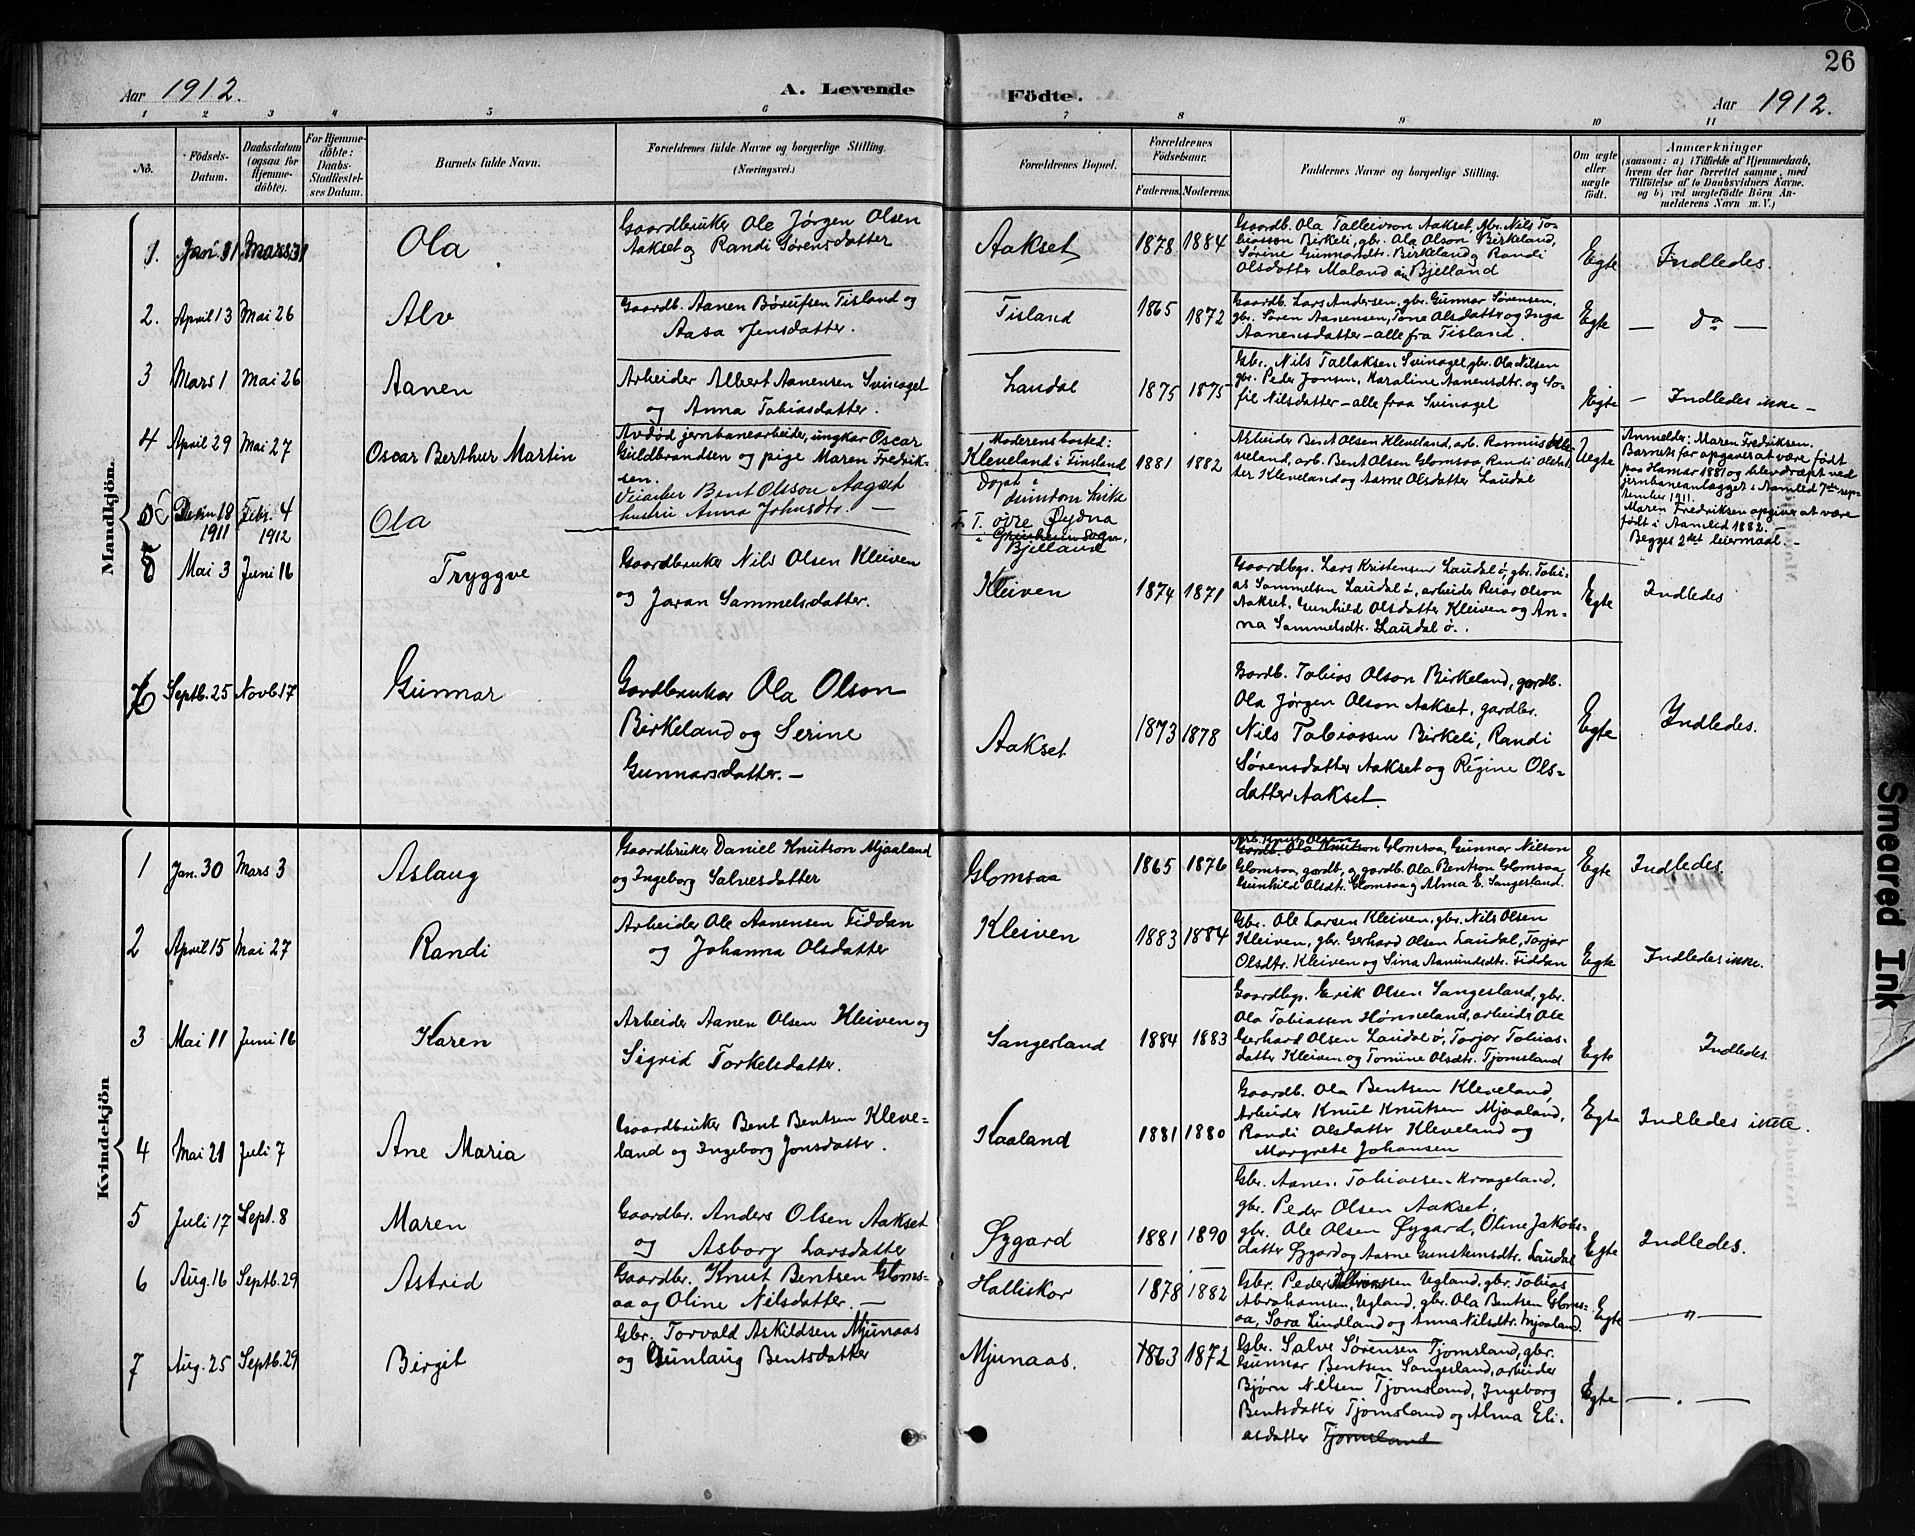 26
Aar 1912.
A. Levende
Födte.
Aar 1912.
1 2 3 4 5 6 7 8 9 10 11
No.
Födsels-
Datum.
Daabsdatum
(ogsaa for
Hjemme-
döbte).
For Hjemme-
döbte:
Daabs-
Stadfæstel-
ses Datum.
Barnets fulde Navn.
Forældrenes fulde Navne og borgerlige Stilling.
(Næringsvei.)
Forældrenes Bopæl.
Forældrenes
Födselsaar.
Faderens. Moderens.
Faddernes Navne og borgerlige Stilling.
Om ægte
eller
uægte
födt.
Anmærkninger
(saasom: a) i Tilfælde af Hjemmedaab,
hvem der har forrettet samme, med
Tilföielse af to Daabsvidners Navne,
og b) ved uægtefödte Börn An-
melderens Navn m. V.)
Mandkjön.
1. Jan. 31 Mars 31
Ola
Gaardbruker Ole Jørgen Olsen
Aakset og Randi Sørensdatter
Aakset
1878 1884
Gaardb. Ola Talleivson Aakset, gbr. Nils To-
biasson Birkeli, gbr. Ola Olson Birkeland,
Sørine Gunnarsdtr. Birkeland og Randi
Olsdatter Maland i Bjelland
Egte
Indledes.
2. April 13 Mai 26
Alv
Gaardb. Aanen Børufsen Tisland og
Aasa Jensdatter.
Tisland
1865 1872
Gaardb. Lars Andersen, gbr. Gunnar Sørensen,
gbr. Søren Aanensen, Tone Olsdatter og Inga
Aanensdatter – alle fra Tisland.
Egte
— Do —
3 Mars 1 Mai 26
Aanen
Arbeider Albert Aanensen Svinagel
og Anna Tobiasdatter.
Laudal
1875 1875
Gbr. Nils Tallaksen Svinagel gbr. Ola Nilsen
gbr. Peder Jonsen, Karaline Aanensdtr. og So-
fie Nilsdatter – alle fraa Svinagel
Egte
— Indledes ikke —
4 April 29 Mai 27
Oscar Berthur Martin
Avdød jernbanearbeider, ungkar Oscar
Guldbrandsen og pige Maren Fredrik-
sen.
Moderens bosted:
Kleveland i Finsland
1881 1882
Arbeider Bent Olsen Kleveland, arb. Rasmus
veland, arb. Bent Olsen Glomsaa, Randi Olsdat-
ter Kleveland og Aasne Olsdatter Laudal
Uegte
Anmelder: Maren Fredriksen.
Barnets far opgaves at være født
paa Hamar 1881 og blev dræpt ved
jernbaneanlægget i Aamlid 7de sep-
tember 1911.
Maren Fredriksen opgives at være
født i Aamlid 1882. —
Begges 2det leiermaal —
Desem 18 Febr. 4
1911 1912
Ola
Bent Olsson Aagset
hustru Anna Johnsdtr. —
Døpt i
kirke
øvre Øydna
i Grinheim sogn,
Bjelland
5 Mai 3 Juni 16
Tryggve
Gaardbruker Nils Olsen Kleiven
og Jaran Sammelsdatter.
Kleiven
1874 1871
Gaardbgr. Lars Kristensen Laudal ø, gbr. Tobi-
as Sammelsen Laudal ø, arbeider Reias Olson
Aakset, Gunhild Olsdatter Kleiven og An-
na Sammelsdtr. Laudal ø.
Egte
Indledes
Septb. 25 Novb. 17
Gunnar
Gardbrukar Ola Olson
Birkeland og Serine
Gunnarsdatter. —
Aakset
1873 1878
Gardb. Tobias Olson Birkeland, gardb.
Ola Jørgen Olson Aakset, gardbr.
Nils Tobiassen Birkeli, Randi
Sørensdatter Aakset og Regine Ols-
datter Aakset.
Egte
Indledes.
Kvindekjön
1 Jan. 30 Mars 3
Aslaug
Gaardbruker Daniel Knutson Mjaaland
og Ingeborg Salvesdatter
Glomsaa
1865 1876
arb. Knut Olsen
Gardb. Ola Knutson Glomsaa, Gunnar Nilson
Glomsaa, gardb, og gardb. Ola Bentson Glomsaa
Gunhild Olsdt. Glomsaa og Alma E. Sangesland.
Egte
Indledes.
2 April 15 Mai 27
Randi
Arbeider Ole Aanensen Fiddan
og Johanna Olsdatter
Kleiven
1883 1884
Gbr. Ole Larsen Kleiven, gbr. Nils Olsen
Kleiven, gbr. Gerhard Olsen Laudal, Torjør
Olsdtr. Kleiven og Sina Aamundsdtr. Fiddan
Egte
Indledes ikke.
3 Mai 11 Juni 16
Karen
Arbeider Aanen Olsen Kleiven og
Sigrid Torkelsdatter.
Sangesland
1884 1883
Gaardbgr. Erik Olsen Sangesland, gbr.
Ola Tobiassen Hønneland, arbeider Ole
Gerhard Olsen Laudal ø, Torjør Tobias-
datter Kleiven og Tomine Olsdtr. Tjomsland
Egte
Indledes.
4 Mai 21 Juli 7
Ane Maria
Gaardbruker Bent Bentsen Kleve-
land og Ingeborg Jonsdatter.
Kaaland
1881 1880
Gaardb. Ola Bentsen Kleveland,
Arbeider Knut Knutsen Mjaaland,
Randi Olsdatter Kleveland og
Margrete Johansen
Egte
Indledes ikke.
5 Juli 17 Sept. 8
Maren
Gaardbr. Anders Olsen Aakset
og Asborg Larsdatter
Øygard
1881 1890
Gbr. Aanen Tobiassen Kraageland,
gbr. Peder Olsen Aakset,
gbr. Ole Olsen Øygard, Oline Jakobs-
datter Øygard og Aasne Gunstensdtr. Laudal
Egte
Indledes.
6 Aug. 16 Septb. 29
Astrid
Gaardbr. Knut Bentsen Gloms-
aa og Oline Nilsdatter. —
Halliskor
1878 1882
Gbr. Peder Ugland, gbr. Tobias
Abrahamsen, Ugland, gbr. Ola Bentsen Gloms-
aa, Sara Lindland og Anna Nilsdtr. Mjaaland.
Egte
— " —
7 Aug. 25 Septb. 29
Birgit
Gbr. Torvald Askildsen Mjunaas
og Gunlaug Bentsdatter
Mjunaas.
1863 1872
Gbr. Salve Sørensen Tjomsland, gbr.
Gunnar Bentsen Sangesland, arbeider
Bjørn Nilsen Tjomsland, Ingeborg
Bentsdatter Tjomsland og Alma Eli-
asdatter Tjomsland
Egte
— " —
Smeared Ink